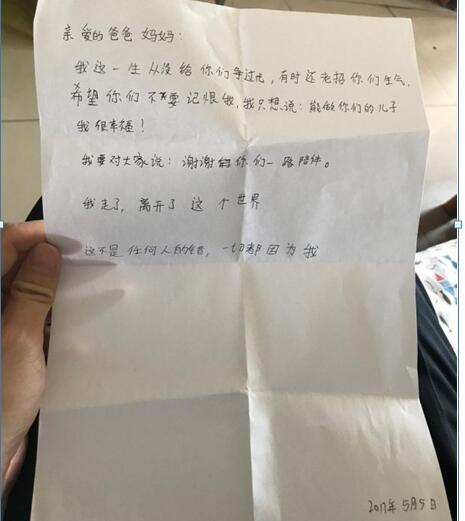 亲爱的爸爸 妈妈:
我这一生从没给你们争过光,有时还老招你们生气,
希望你们不要记恨我,我只想说:能做你们的儿子
我很幸福!
我要对大家说:谢谢你们一路陪伴。
我走了,离开了这个世界
这不是任何人的错,一切都因为我
2017年5月5日